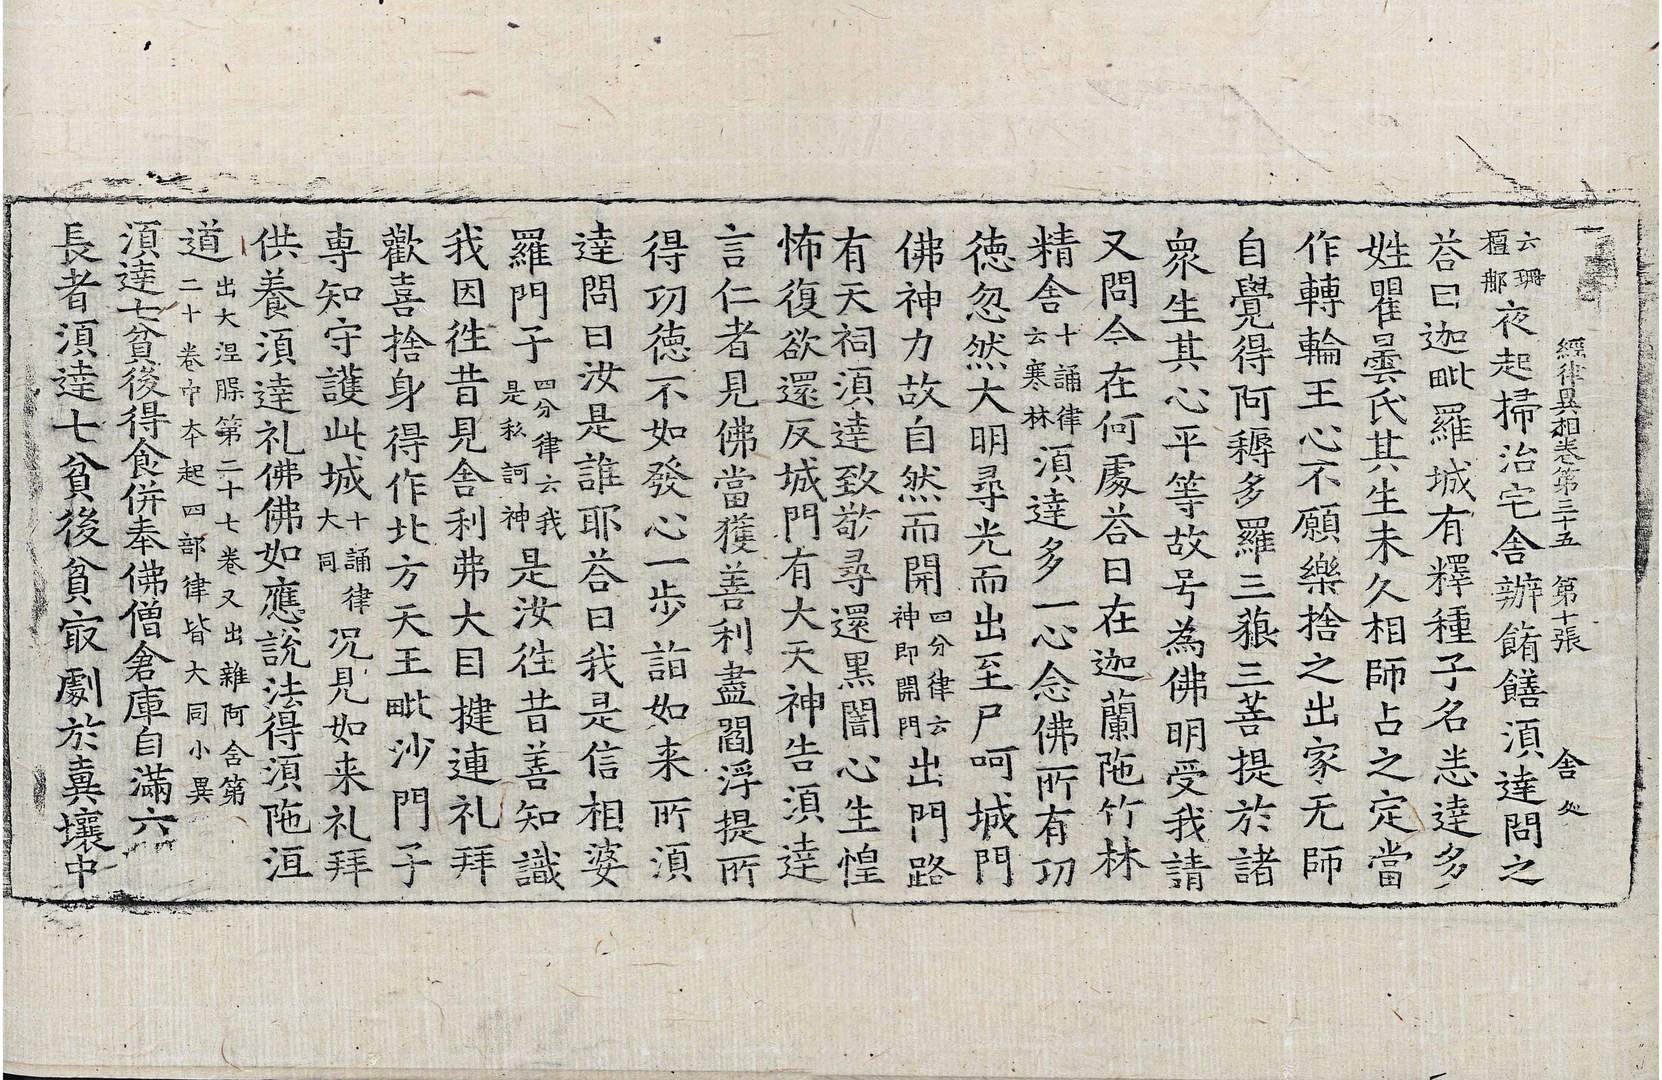 經律異相卷第三十五 第十張 舍处
云珊檀那夜起掃治宅舍辦餚饍湏達問之
荅曰迦毗羅城有釋種子名悉達多
姓瞿曇氏其生未久相師占之定當
作轉輪王心不願樂捨之出家无師
自覺得阿耨多羅三藐三菩提於諸
衆生其心平等故号為佛明受我請
又問今在何處荅曰在迦蘭陁竹林
精舍十誦律云寒林湏達多一心念佛所有㓛
德忽然大明尋光而出至尸呵城門
佛神力故自然而開四分律云神即開門出門路
有天祠湏達致敬尋還黑闇心生惶
怖復欲還反城門有大天神告湏達
言仁者見佛當獲善利盡閻浮提所
得㓛德不如發心一步詣如来所湏
達問曰汝是誰耶荅曰我是信相婆
羅門子四分律云我是私訶神是汝徃昔善知識
我因徃昔見舍利弗大目揵連礼拜
歡喜捨身得作北方天王毗沙門子
專知守護此城十誦律大同况見如来礼拜
供養湏達礼佛佛如應說法得湏陁洹
道出大涅槃第二十七卷又出雜阿含第二十卷中本起四部律皆大同小異
湏達七貧後得食併奉佛僧倉庫自滿六
長者湏達七貧後貧㝡劇於糞壤中